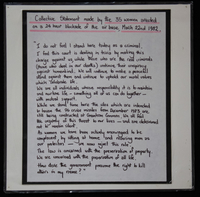 Collective Statement made by the 35 women arrested
on a 24 hour blockade of the air base, March 22nd 1982.
"I do not feel I stand here today as a criminal.
I feel this court is dealing in trivia by making this
charge against us, while those who are the real criminals
(those who deal in our deaths) continue their conspiracy
against humankind. We will continue to make a peaceful
stand against them and continue to uphold our moral values
which celebrate life.
We are all individuals whose responsibility it is to maintain
and nurture life - something all of us can do together -
with mutual support.
While we stand here today the silos which are intended
to house the 96 cruise missiles from December 1983 are
still being constructed at Greenham Common. We all face
the majority of this threat to our lives - and are determined
not to remain silent.
As women we have been actively encouraged to be
complacent, by sitting at home, and relying men as
our protectors - we now reject this role.
The law is concerned with the preservation of property.
We are concerned with the preservation of all life.
How dare the government presume the right to kill
others in my name?"